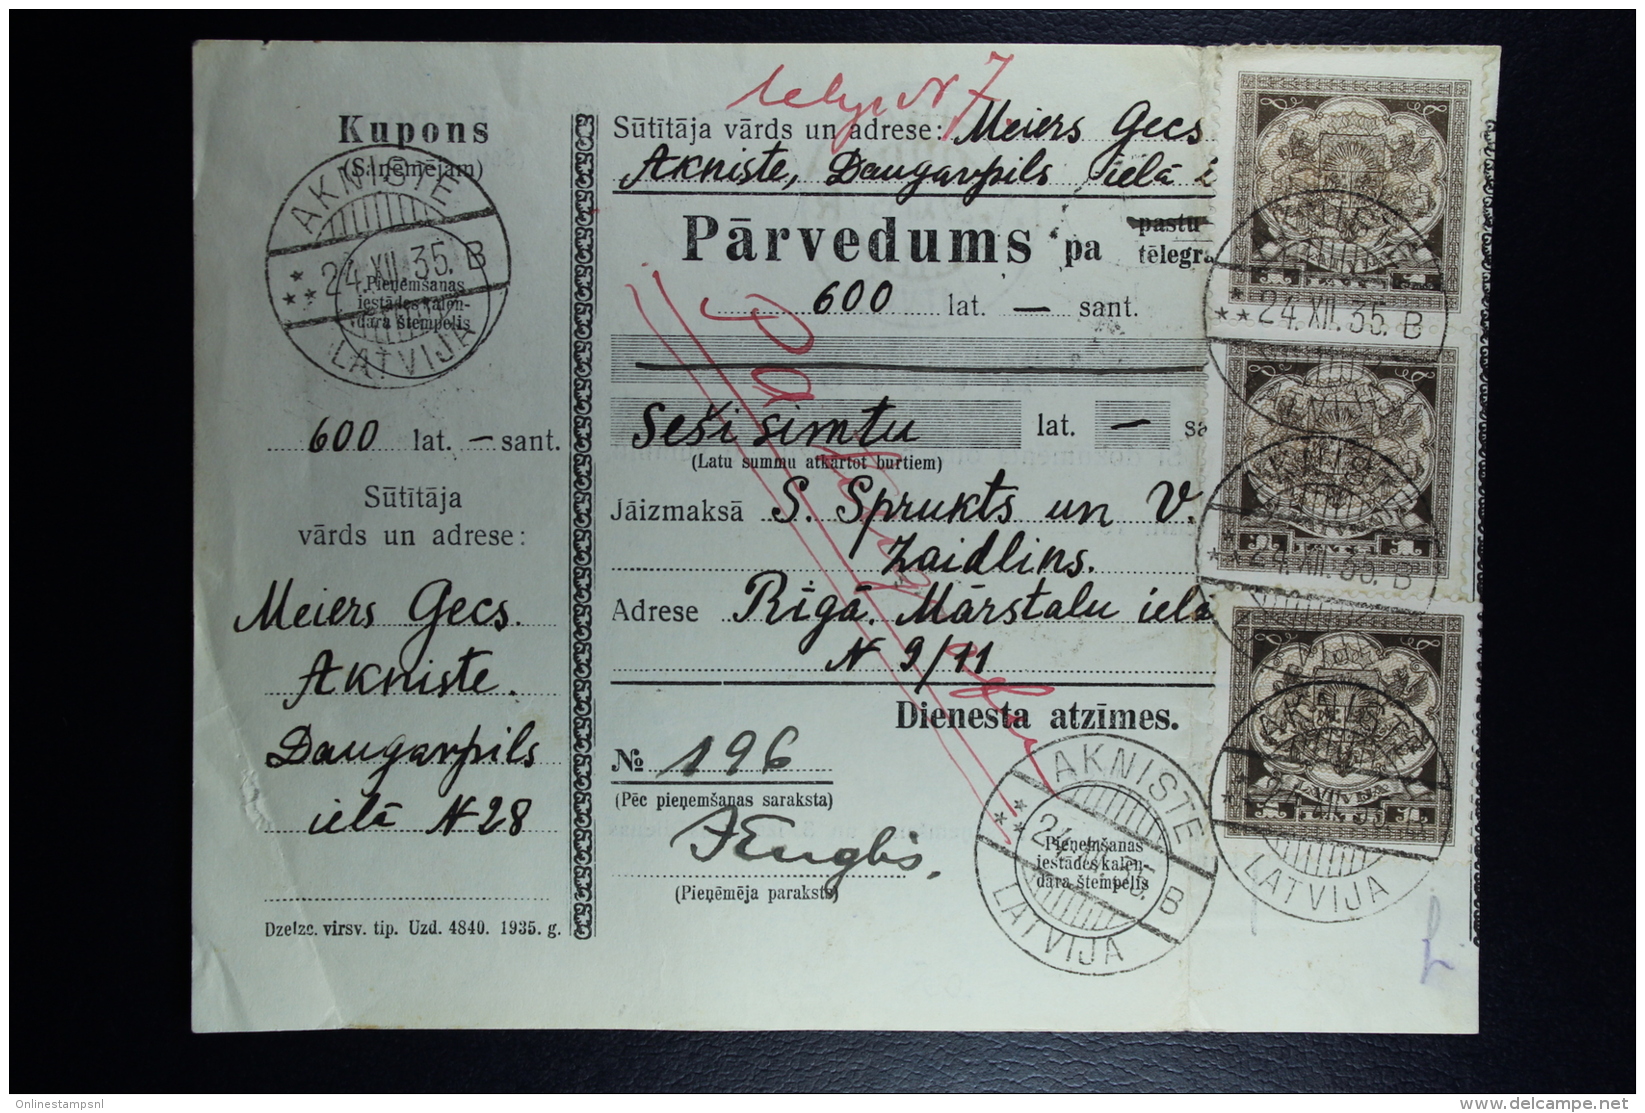 Kupons
(Saņēmējam)
AKNISTE
24.XII.35. B
Pieņemšanas
iestādes kalen-
dara štempelis
LATVIJA
600 lat. — sant.
Sūtītāja
vārds un adrese:
Meiers Gecs.
Akniste.
Daugavpils
ielā N 28
Dzelzc. virsv. tip. Uzd. 4840. 1935. g.
N 7.
Sūtītāja vārds un adrese: Meiers Gecs
Akniste, Daugavpils ielā
Pārvedums pa pastu
tēlegra
600 lat. — sant.
Seši simtu lat. — sa
(Latu summu atkārtot burtiem)
Jāizmaksā S. Sprukts un V.
Zaidlins.
Adrese Rīgā. Mārstalu ielā
N 9/11
Dienesta atzīmes.
№ 196
(Pēc pieņemšanas saraksta)
(Pieņēmēja paraksts)
AKNISTE
24.XII.35. B
Pieņemšanas
iestādes kalen-
dāra štempelis
LATVIJA
AKNISTE
24.XII.35. B
1 LATS 1
AKNISTE
24.XII.35. B
1 LATVIJA 1
AKNISTE
LATVIJA
Onlinestampsnl
delcampe.net